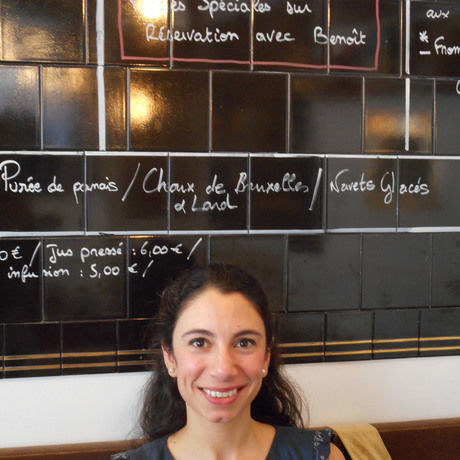 es Spéciales sur
Réservation avec Benoît
aux
* From
Purée de panais / Choux de Bruxelles / Navets Glacés
& Lard
0€ / Jus pressé : 6,00 € /
infusion : 5,00 € /